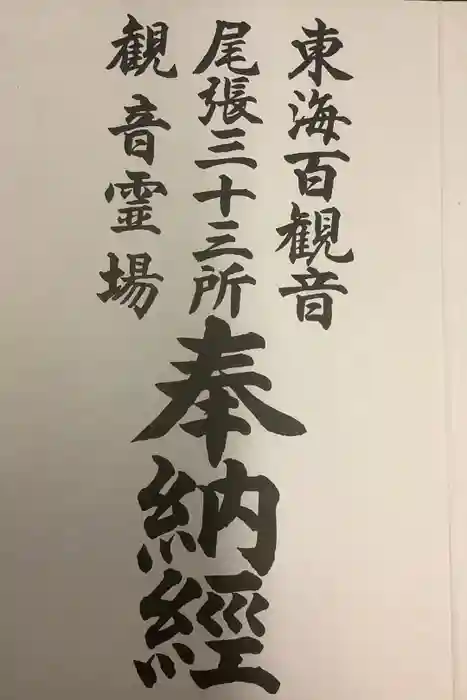 東海百観音
尾張三十三所
観音霊場
奉納經